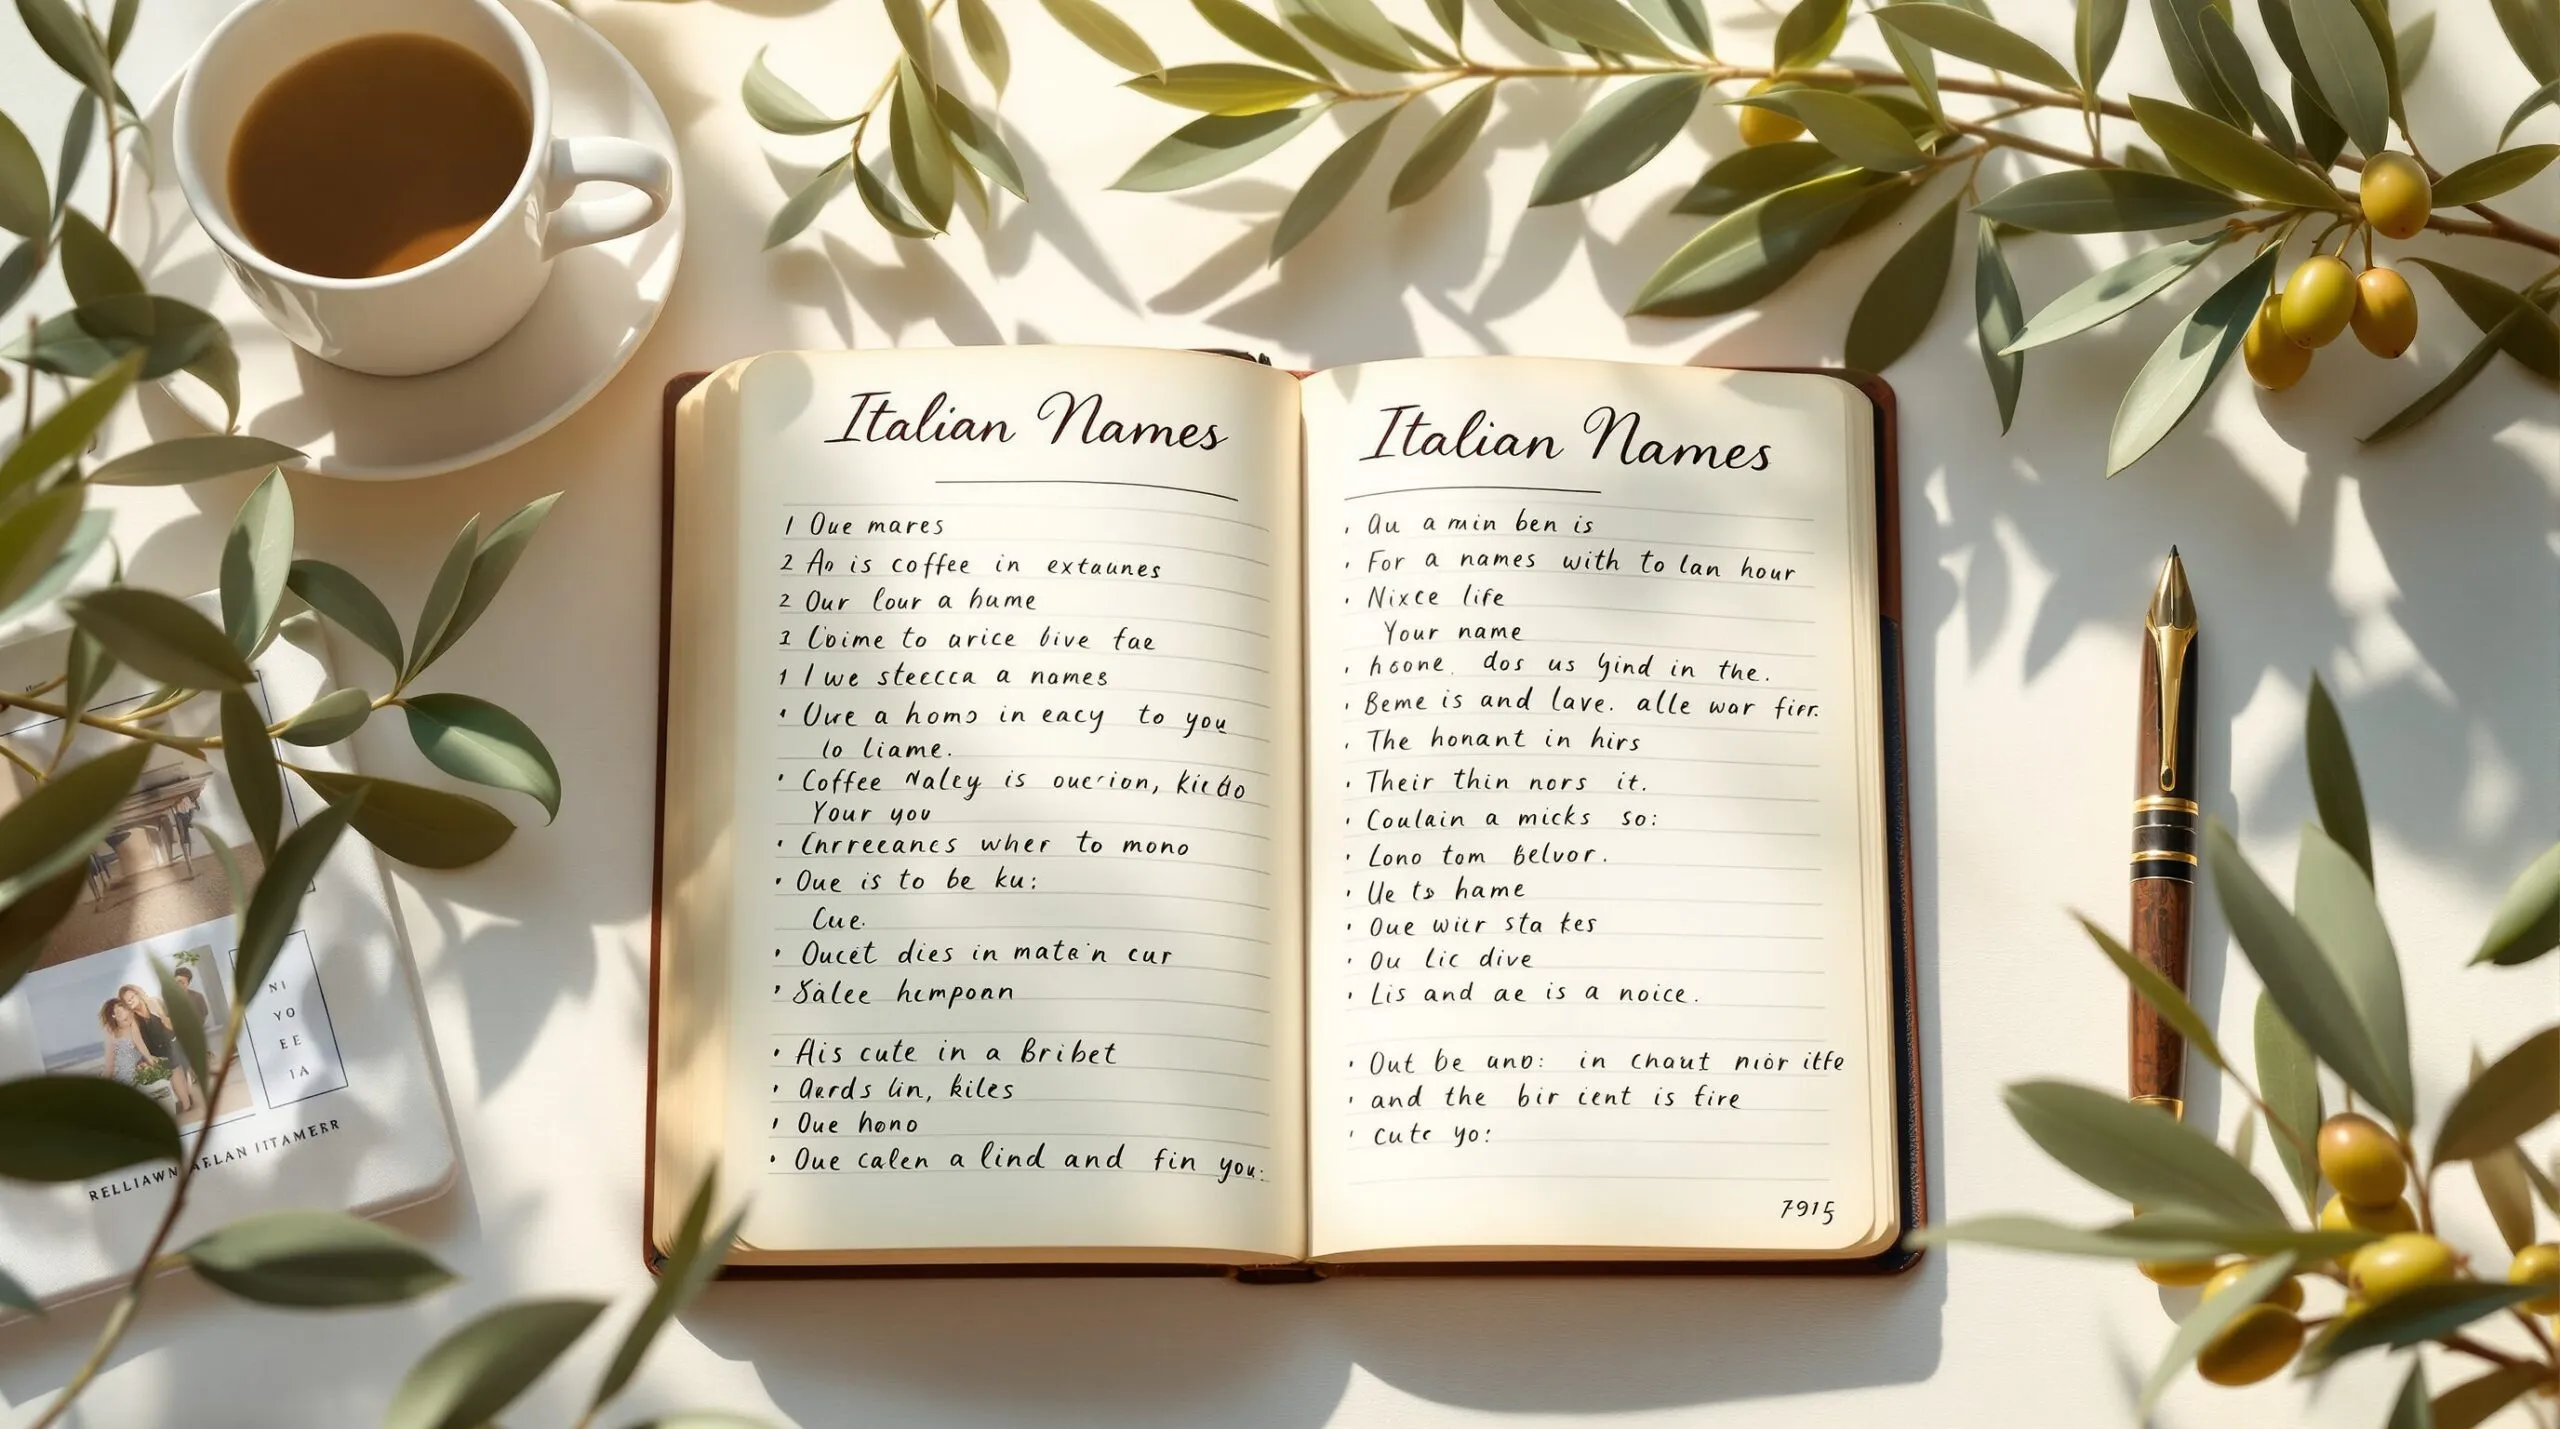 Italian Names
1 Oue mares
2 An is coffee in extaunes
2 Our lour a hume
3 Coime to arice bive fae
1 I we steccca a names
Uwe a homo in eacy to you
lo liame.
Coffee Naley is
Your you
wher to mono
Oue is to be ku:
Cue.
Oucet dies in mate'n cur
Salee hemponn
Ais cute in a Bribet
lin, kiles
Oue hono
Oue calen a lind and fin you:
Italian Names
Au a min ben is
For a names with to lan hour
Nixce life
Your name
hoone. dos us in the.
Beme is and lave. alle war firr.
The honant in hirs
Their thin nors it.
Coulain a micks so:
Lono tom Belvor.
Ue to hame
Oue wicr sta kes
Ou lic dive
Lis and ae is a noice.
Out be uno: in chaut nior itfe
and the bir ient is fire
cute yo:
7915
NI
YO
EE
IA
RELLIAWN AELAN IITAMERR